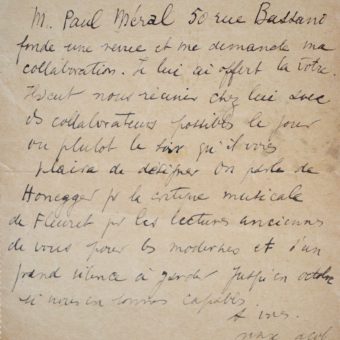 M. Paul Méral 50 rue Bassano
fonde une revue et me demande ma
collaboration. Je lui ai offert la votre.
Il veut nous réunir chez lui avec
des collaborateurs possibles le jour
ou plutot le soir qu'il vous
plaira de designer On parle de
Honegger pr la critique musicale
de Fleuret pr les lectures anciennes
de vous pour les modernes et d'un
grand silence à garder jusqu'en octobre
si nous en sommes capables
A vous.
max jacob